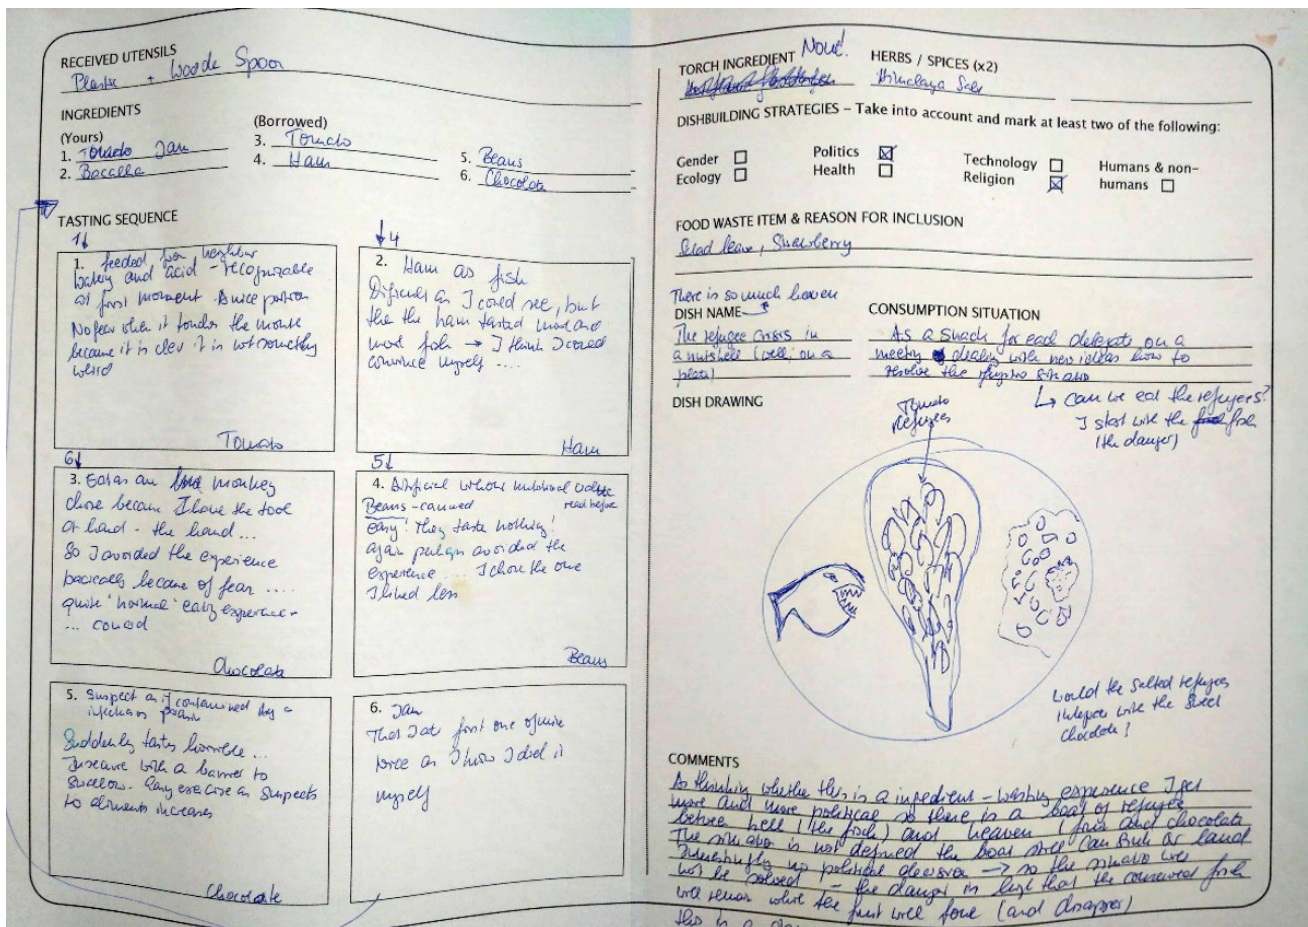 RECEIVED UTENSILS
Plastic + Woode Spoon
INGREDIENTS
(Yours)
1. Tomato Jam
2. Bacalla
(Borrowed)
3. Tomato
4. Ham
5. Beans
6. Chocolate
TASTING SEQUENCE
1↓
1. feeded from neighbour
watery and acid - recognizable
at first moment. A nice portion
No fear when it touches the mouse
because it is clev it is not something
weird
Tomato
↓4
2. Ham as fish
Difficult as I cored see, but
the the ham tasted more and
more fish → I think I cored
convince myself ....
Ham
6↓
3. Eat as an monkey
chose because I have the tool
at hand - the hand...
So I avoided the experience
basically because of fear ....
quite 'normal' eating experience -
... coward
Chocolate
5↓
4. Artificial without nutritional value
read before
Beans - canned
easy! They taste nothing!
again perhaps avoided the
experience .... I chose the one
I liked less
Beans
5. Suspect as if contamined by a
infectious
Suddenly tastes horrible ...
Insecure with a barrier to
swallow. Easy exercise as suspects
to aliments increases
Chocolate
6. Jam
That I ate first one of mine
as I know I did it
myself
TORCH INGREDIENT None!
HERBS / SPICES (x2)
Himalaya Salt
DISHBUILDING STRATEGIES – Take into account and mark at least two of the following:
Gender
Ecology
Politics
Health
Technology
Religion
Humans & non-
humans
FOOD WASTE ITEM & REASON FOR INCLUSION
Salad leave, Strawberry
There is so much heaven
DISH NAME
The refugee crisis in
a nutshell (well, on a
plate)
CONSUMPTION SITUATION
As a snack for each delegate on a
meeting dealing with new ideas how to
resolve the situatio
↳ Can we eat the refugees?
I start with the fish
(the danger)
DISH DRAWING
Tomato
Refugees
would the salted refugees
integrate with the sweet
chocolate?
COMMENTS
As thinking whethe this is a ingredient - wasting experience I get
more and more political so there is a boat of refugees
between hell (the fish) and heaven (fruit and chocolate
The situatio is not defined the boat still can sink or land
Interestingly no political decision → so the situatio will
not be solved - the danger is high that the conserved fish
will remain while the fruit will (and disappear)
this is a